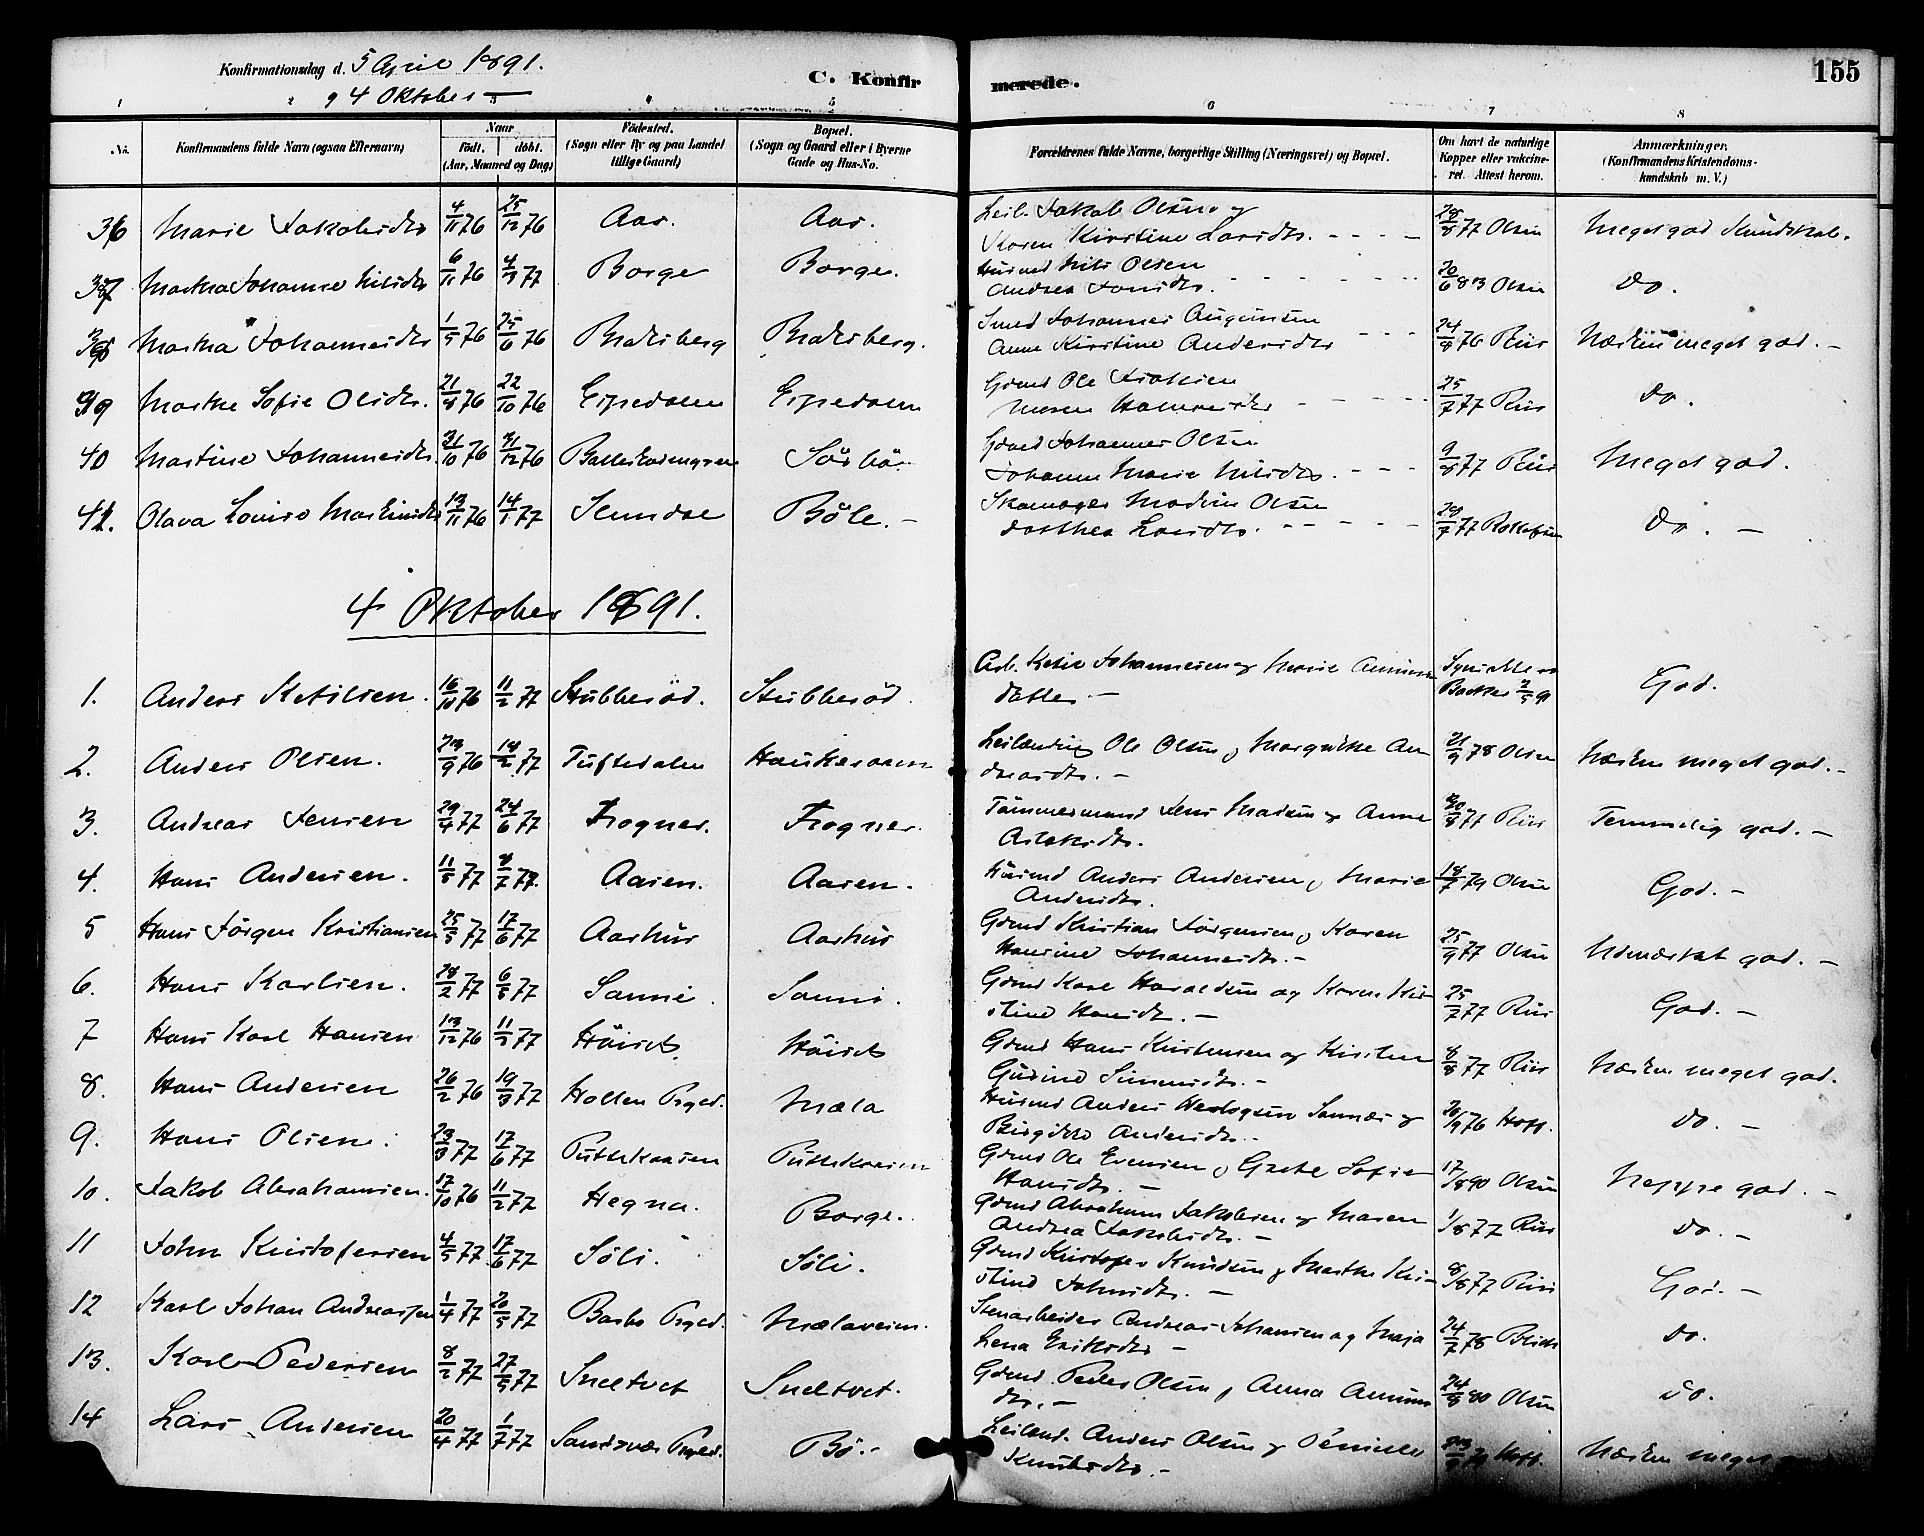 Konfirmationsdag d. 5 April 1891.
og 4 Oktober —
C. Konfirmerede.
155
1 2 3 4 5 6 7 8
No.
Konfirmandens fulde Navn (ogsaa Efternavn)
Naar
födt. döbt.
(Aar, Maaned og Dag)
Födested.
(Sogn eller By og paa Landet tillige Gaard)
Bopæl.
(Sogn og Gaard eller i Byerne Gade og Hus-No.
Forældrenes fulde Navne, borgerlige Stilling (Næringsvei) og Bopæl.
Om havt de naturlige Kopper eller vaccineret. Attest herom.
Anmærkninger.
(Konfirmandens Kristendomskundskab m. V.)
36 Marie Jakobsdtr 4/11 76 25/12 76 Aas. Aas. Leil. Jakob Olsen og Karen Kirstine Larsdtr. 28/8 77 Olsen Meget god Kundskab.
37 Martha Johanne Nilsdtr 6/11 76 4/3 77 Borge Borge. Husmd Nils Olsen Andrea Jonsdtr. 20/6 83 Olsen Do.
38 Martha Johannesdtr 1/5 76 25/6 76 Bratsberg Bratsberg. Smed Johannes Augunsen Anne Kirstine Andersdtr 24/8 76 Riis Næsten meget god. —
39 Marthe Sofie Olsdtr. 21/8 76 22/10 76 Grmd Ole 25/7 77 Riis Do.
40 Martine Johannesdtr. 31/10 76 31/12 76 Grmd Johannes Olsen Johanne Marie Nilsdtr. 9/8 77 Riis Meget god.
41. Olava Lovise 13/11 76 14/1 77 Böle. — Skomager Olsen Dorthea Larsdtr. 29/7 77 Rollefsen Do. —
4 Oktober 1891.
1. Anders Ketilsen. 16/10 76 11/2 77 Stubberöd. Stubberöd. Arb. Ketil Johannesen og Marie Amunds datter. — Backer 2/5 91 God.
2. Anders Olsen. 23/9 76 18/2 77 Tuftedalen Haukeraaen Leilænding Ole Olsen og Margrethe Andreasdtr. — 21/9 78 Olsen Næsten meget god. —
3. Andreas Jensen 29/4 77 24/6 77 Frogner. Frogner. Tömmermand Jens Madsen og Anne Aslaksdtr. Riis Temmelig god. —
4. Hans Andersen. 11/5 77 8/7 77. Aasen. Aasen. Husmd Anders Andersen, Marie Andersdtr. 18/7 79 Olsen God. —
5 Hans Jörgen Kristiansen 25/5 77 17/6 77 Aarhus Aarhus Grmd Kristian Jörgensen, Karen Hansine Johannesdtr. — 25/9 77 Olsen Udmærket god. —
6. Hans Karlsen. 28/2 77 6/5 77 Sanni. Sanni. Grmd Karl Haraldsen og Karen Kirstine Hansdtr. — 25/7 77 Riis God. —
7 Hans Karl Hansen 13/12 76 11/2 77 Höiset. Höiset Grmd Hans Kristensen og Kirsten Gurine Simensdtr. — 8/8 77 Riis Næsten meget god.
8. Hans Andersen 26/2 76 19/3 77 Hollen Prgd. Mæla Husmd Anders Sannes og Birgitte Andersdtr. — 20/9 76 Hoff. do. —
9. Hans Olsen. 29/3 77 17/6 77 Puttekaasen Puttekaasen Grmd Ole Evensen, Grete Sofie Hansdtr. — 17/8 90 Olsen Neppe god. —
10. Jakob Abrahamsen. 17/10 76 11/2 77 Hegna. Borge. Grmd Abraham Jakobsen og Maren Andrea Jakobsdtr. — 1/8 77 Riis do. —
11 John Kristofersen 4/5 77 17/6 77 Söli. Söli. Grmd Kristofer Knudsen, Marthe Kirstine Johnsdtr. — 8/8 77 Riis God. —
12 Karl Johan Andreassen 1/4 77 20/5 77 Barbo Prgd. Mælaveien. Stenarbeider Andreas Johansen og Maja Lena Eriksdtr — 24/7 78 Blich do.
13. Karl Pedersen 8/2 77 27/5 77 Sneltvet Sneltvet. Grmd. Peder Olsen, Anna Amundsdtr. — 24/8 80 Olsen do.
14 Lars Andersen 20/4 77 1/7 77 Sandsvær Prgd. Bö. — Leilænd. Anders Olsen og Knutsdtr. — Hoff. Næsten meget